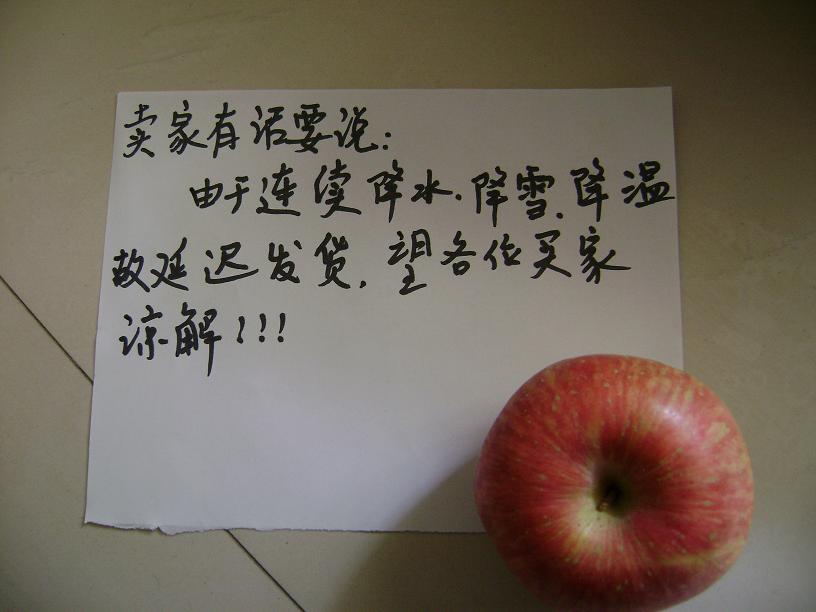 卖家有话要说：
由于连续降水.降雪.降温
故延迟发货.望各位买家
谅解!!!